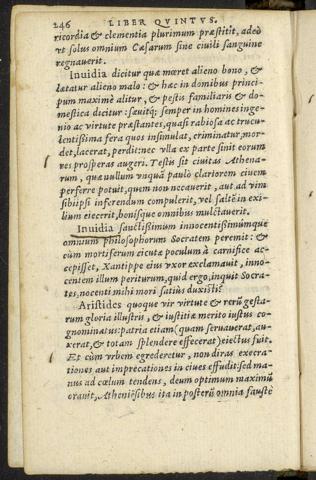 246 LIBER QVINTVS.
ricordia & clementia plurimum præstitit, adeò
vt solus omnium Cæsarum sine ciuili sanguine
regnauerit.
Inuidia dicitur quæ mæret alieno bono, &
lætatur alieno malo: & hæc in domibus princi-
pum maximè alitur, & pestis familiaris & do-
mestica dicitur: sæuitq́; semper in homines inge-
nio ac virtute præstantes, quasi rabiosa ac trucu-
lentissima fera quos insimulat, criminatur, mor-
det, lacerat, perdit: nec vlla ex parte sinit eorum
res prosperas augeri. Testis sit ciuitas Athena-
rum, quæ nullum vnquã paulò clariorem ciuem
perferre potuit, quem non necauerit, aut ad vim
sibiipsi inferendum compulerit, vel saltẽ in exi-
lium eiecerit, bonisque omnibus mulctauerit.
Inuidia sanctissimum innocentissimúmque
omnium philosophorum Socratem peremit: &
cùm mortiferum cicutæ poculum à carnifice ac-
cepisset, Xantippe eius vxor exclamauit, inno-
centem illum periturum, quid ergo, inquit Socra-
tes, nocenti mihi mori satiùs duxisti?
Aristides quoque vir virtute & rerũ gesta-
rum gloria illustris, & iustitiæ merito iustus co-
gnominatus: patria etiam (quam seruauerat, au-
xerat, & totam splendere effecerat) eiectus fuit.
Et cùm vrbem egrederetur, non diras execra-
tiones aut imprecationes in ciues effudit: sed ma-
nus ad cælum tendens, deum optimum maximũ
orauit, Atheniẽsibus ita in posterũ omnia faustè